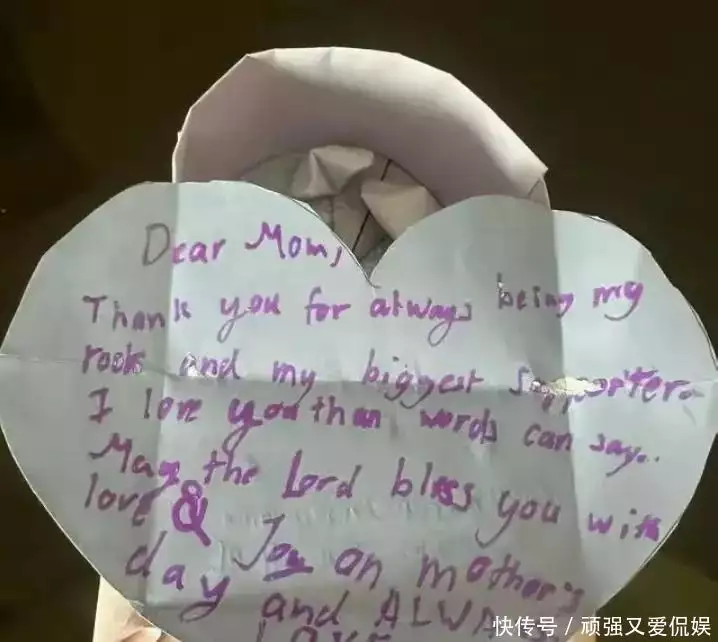 Dear Mom,
Thank you for always being my
rock and my biggest supporter.
I love you than words can say..
May the Lord bless you with
love & Joy on mother's
day and ALWA
LOVE
快传号 / 顽强又爱侃娱